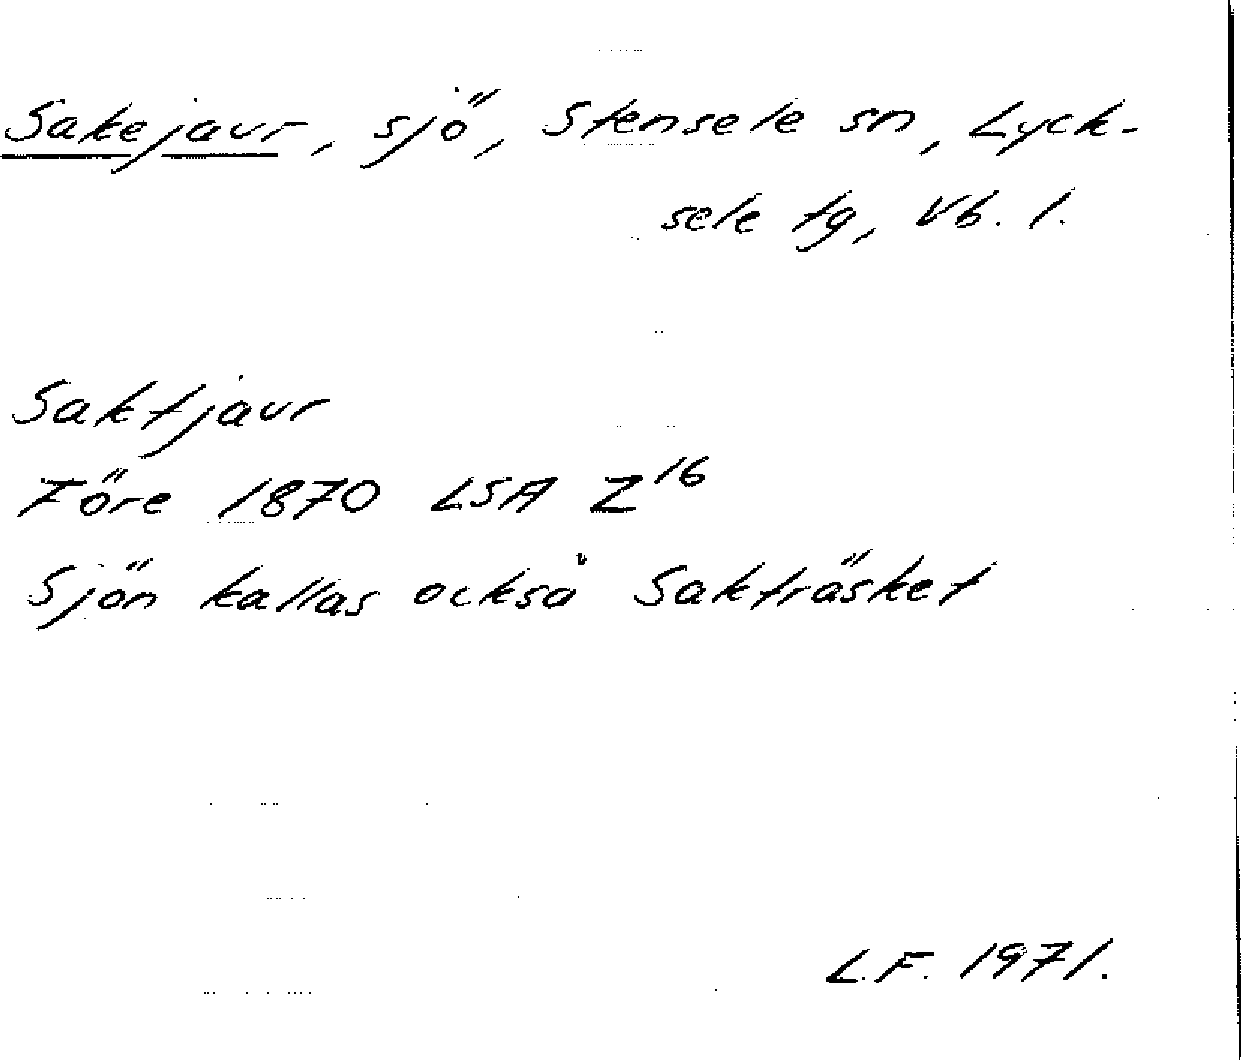 Sakejaur, sjö, Stensele sn, Lyck-
sele tg, Vb. l.
Saktjaur
Före 1870 LSA Z16
Sjön kallas också Sakträsket
L.F. 1971.